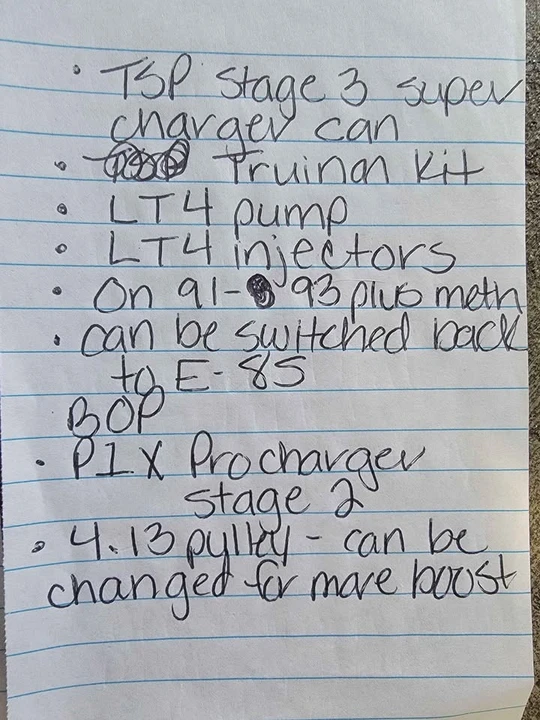 • TSP Stage 3 super
charger can
• Truinon Kit
• LT4 pump
• LT4 injectors
• On 91-93 plus meth
• can be switched back
to E-85
BOP
• P1X Procharger
Stage 2
• 4.13 pylley - can be
changed for more boost